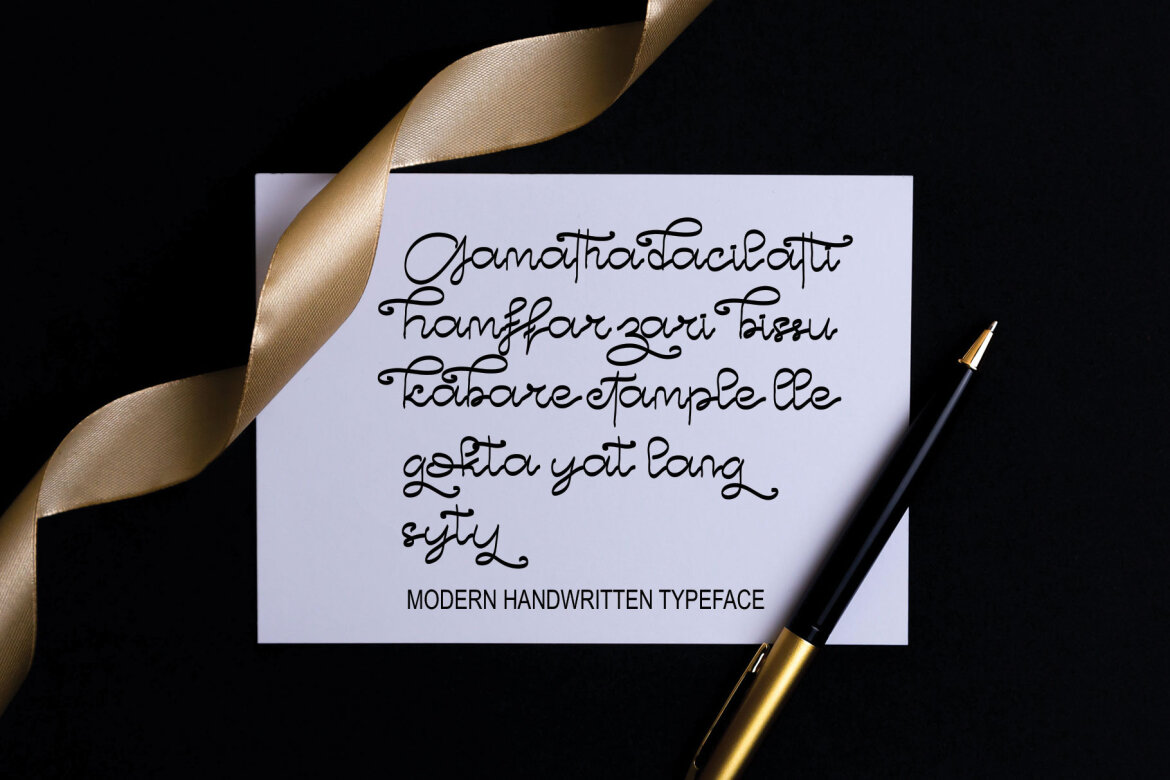 Gamathadacilatti
hamffar zari bissu
kabare etample lle
gokta yat lang
syty
MODERN HANDWRITTEN TYPEFACE